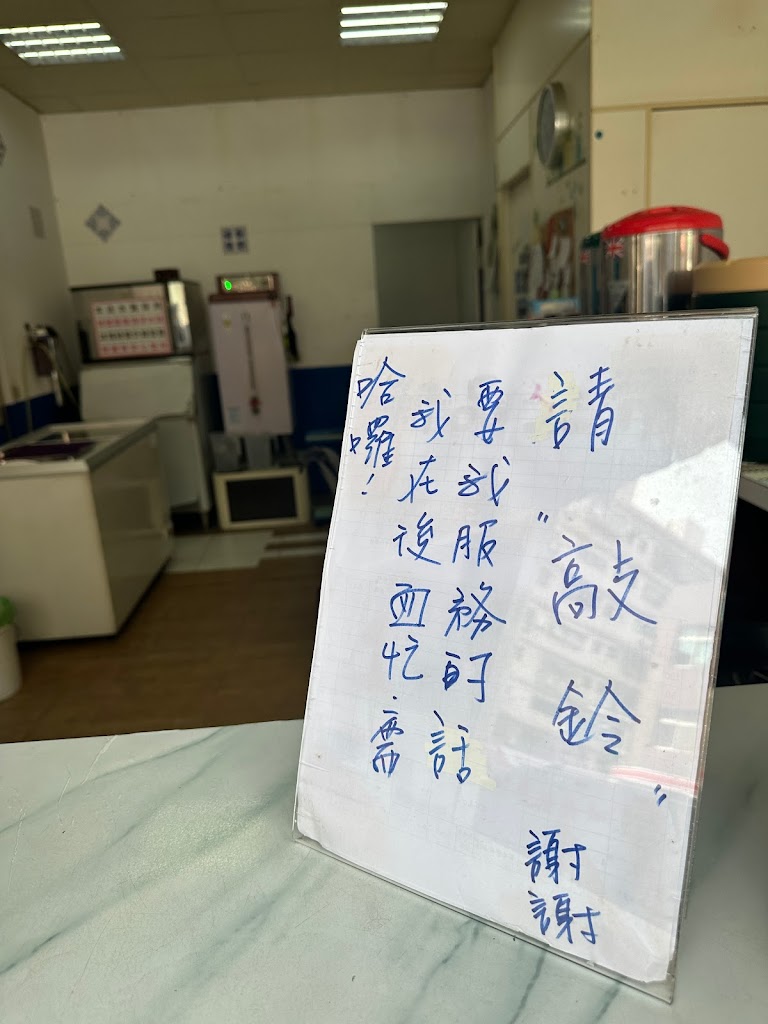 哈囉!
我在後面忙.需
要我服務的話
請"敲鈴"
謝謝